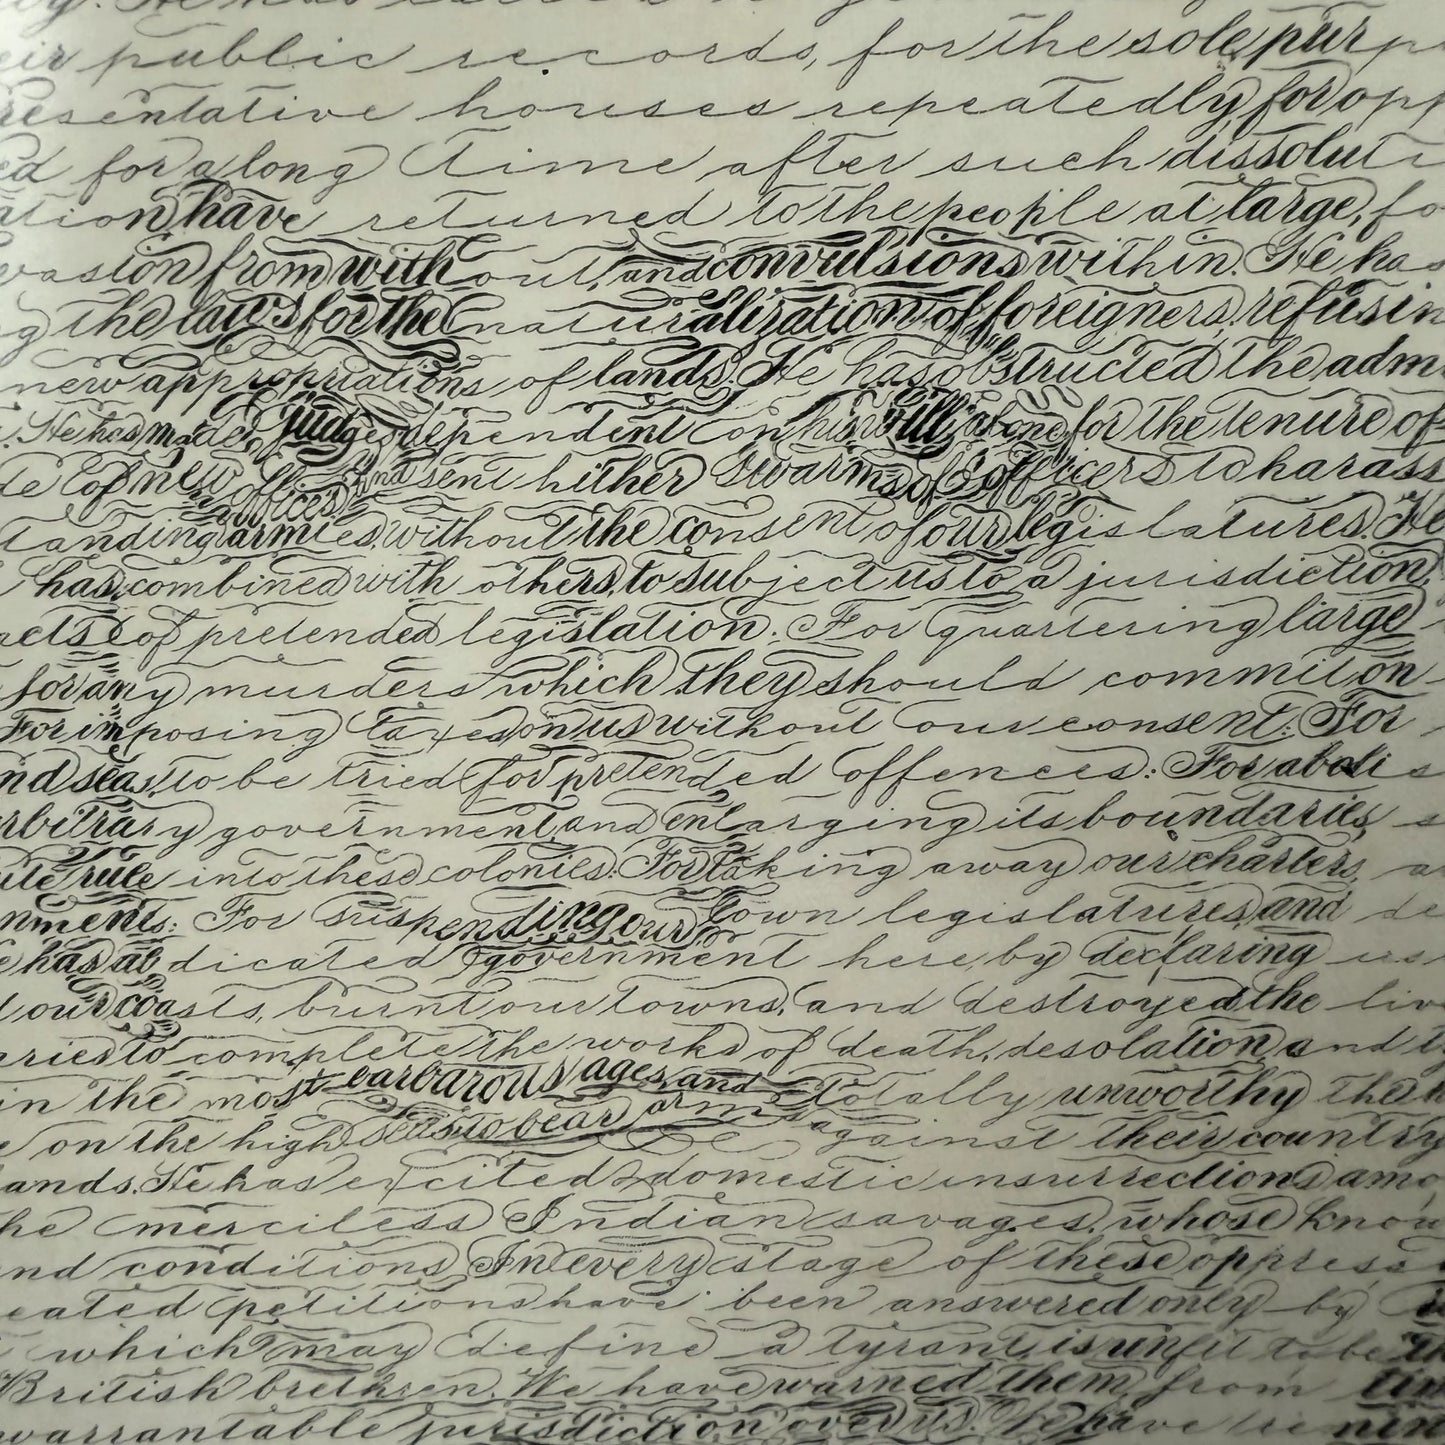 eir public records, for the sole purp
resentative houses repeatedly, for opp
ed for a long time after such dissoluti
ation, have returned to the people at large, fo
vasion from without, and convulsions within. He has
g the laws for the naturalization of foreigners, refusin
new appropriations of lands. He has obstructed the adm
. He has made judges dependent on his will alone for the tenure of
te of new offices and sent hither swarms of officers to harass
tanding armies, without the consent of our legislatures. He
has combined with others, to subject us to a jurisdiction,
acts of pretended legislation. For quartering large
for any murders which they should commit on
For imposing taxes on us without our consent: For
nd seas, to be tried for pretended offences: For aboli
rbitrary government, and enlarging its boundaries s
ute rule into these colonies: For taking away our charters, a
nments: For suspending our own legislatures, and de
e has abdicated government here, by declaring us
d our coasts, burnt our towns, and destroyed the liv
aries to complete the works of death, desolation, and t
in the most barbarous ages, and totally unworthy the h
e on the high seas to bear arms against their country
ands. He has excited domestic insurrections amo
he merciless Indian savages, whose know
nd conditions In every stage of these oppress
eated petitions have been answered only by
which may define a tyrant, is unfit to be th
British brethren. We have warned them, from tim
warrantable jurisdiction over us. We have